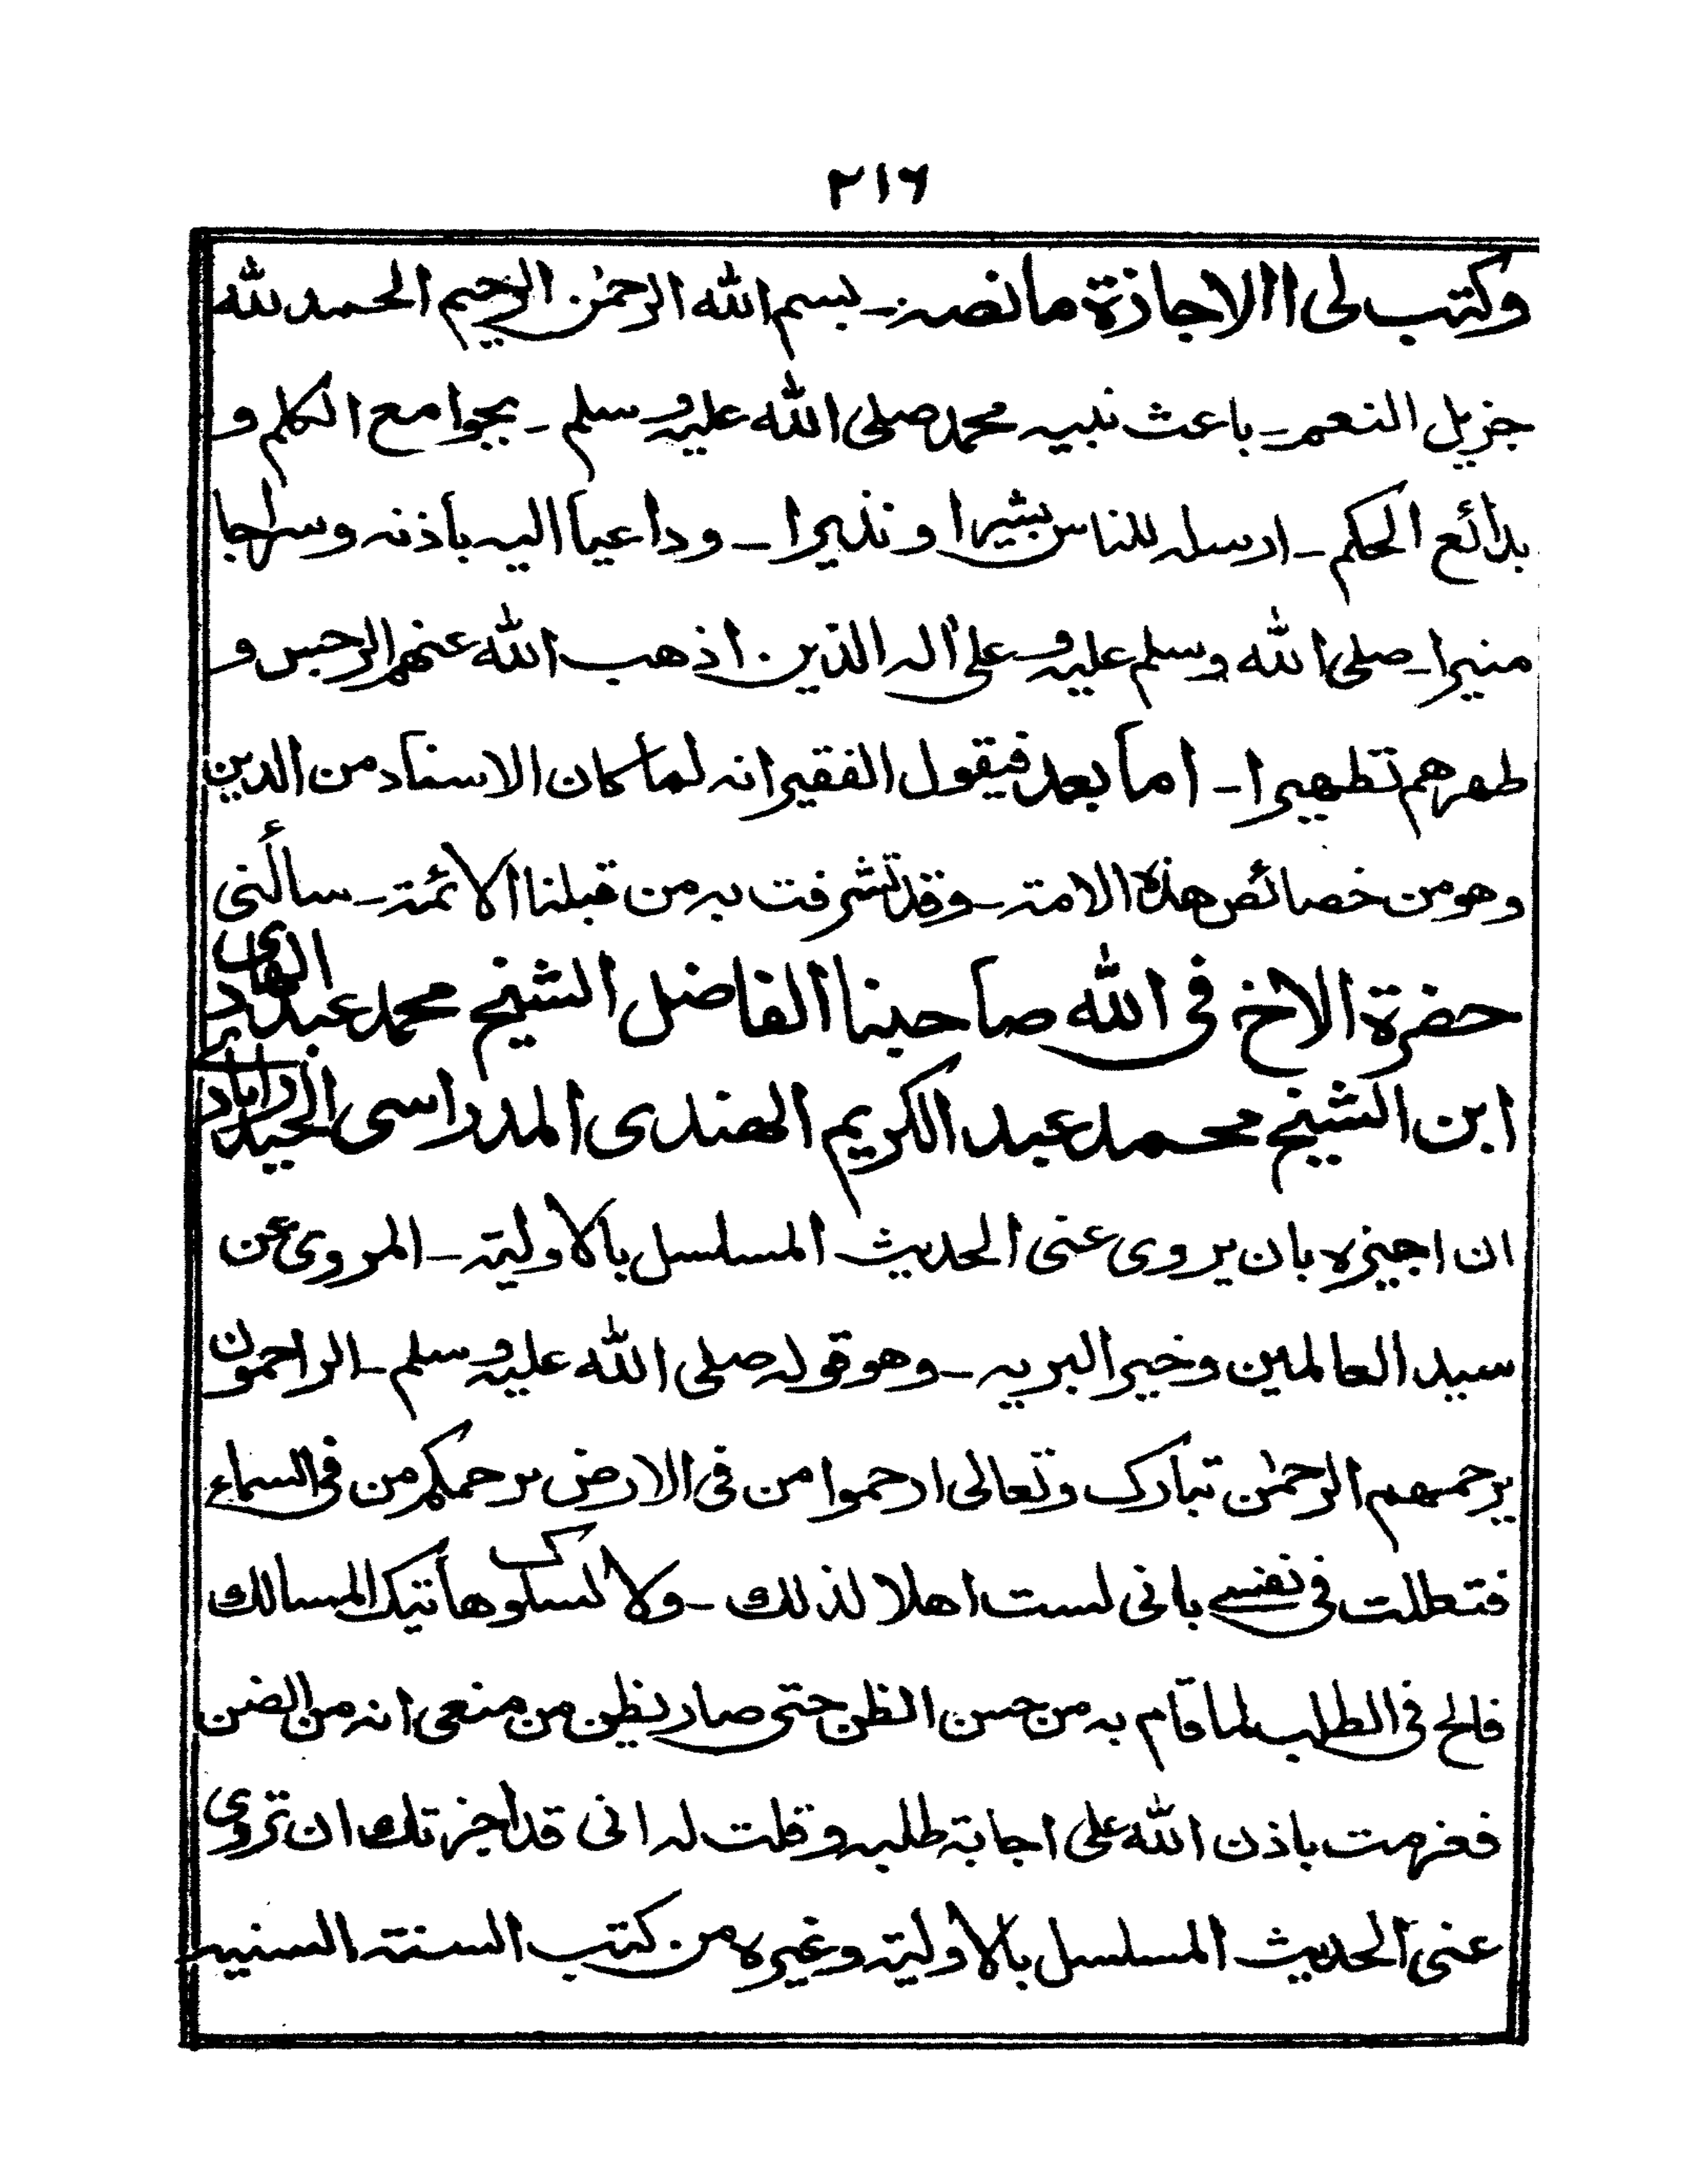 ٢١٦
وكتب لى االاجازة ما نصه - بسم الله الرحمٰن الرحيم الحمد لله
جزيل النعم - باعث نبيه محمد صلى الله عليه و سلم - بجوامع الكلم و
بدائع الحكم - ارسله للناس بشيرا و نذيرا - وداعيا اليه باذنه وسراجا
منيرا - صلى الله وسلم عليه و على اله الذين اذهب الله عنهم الرجس و
طهرهم تطهيرا - اما بعد فيقول الفقير انه لما كان الاسناد من الدين
وهو من خصائص هذه الامة - وقد تشرفت به من قبلنا الائمة - سألنى
حضرة الاخ فى الله صاحبنا الفاضل الشيخ محمد عبد الهادى
ابن الشيخ محمد عبد الكريم الهندى المدراسى الحيدرابادى
ان اجيزه بان يروى عنى الحديث المسلسل بالاولية - المروى عن
سيد العالمين وخير البريه - وهو قوله صلى الله عليه و سلم - الراحمون
يرحمهم الرحمٰن تبارك وتعالى ارحموا من فى الارض يرحمكم من فى السماء
فتعللت فى نفسے بانى لست اهلا لذلك - ولا لسلوك هاتيك المسالك
فالح فى الطلب لما قام به من حسن الظن حتى صار يظن من منعى انه من الضن
فعزمت باذن الله على اجابة طلبه وقلت له انى قد اجزتك ان تروى
عنى الحديث المسلسل بالاولية وغيره من كتب السنة السنيه